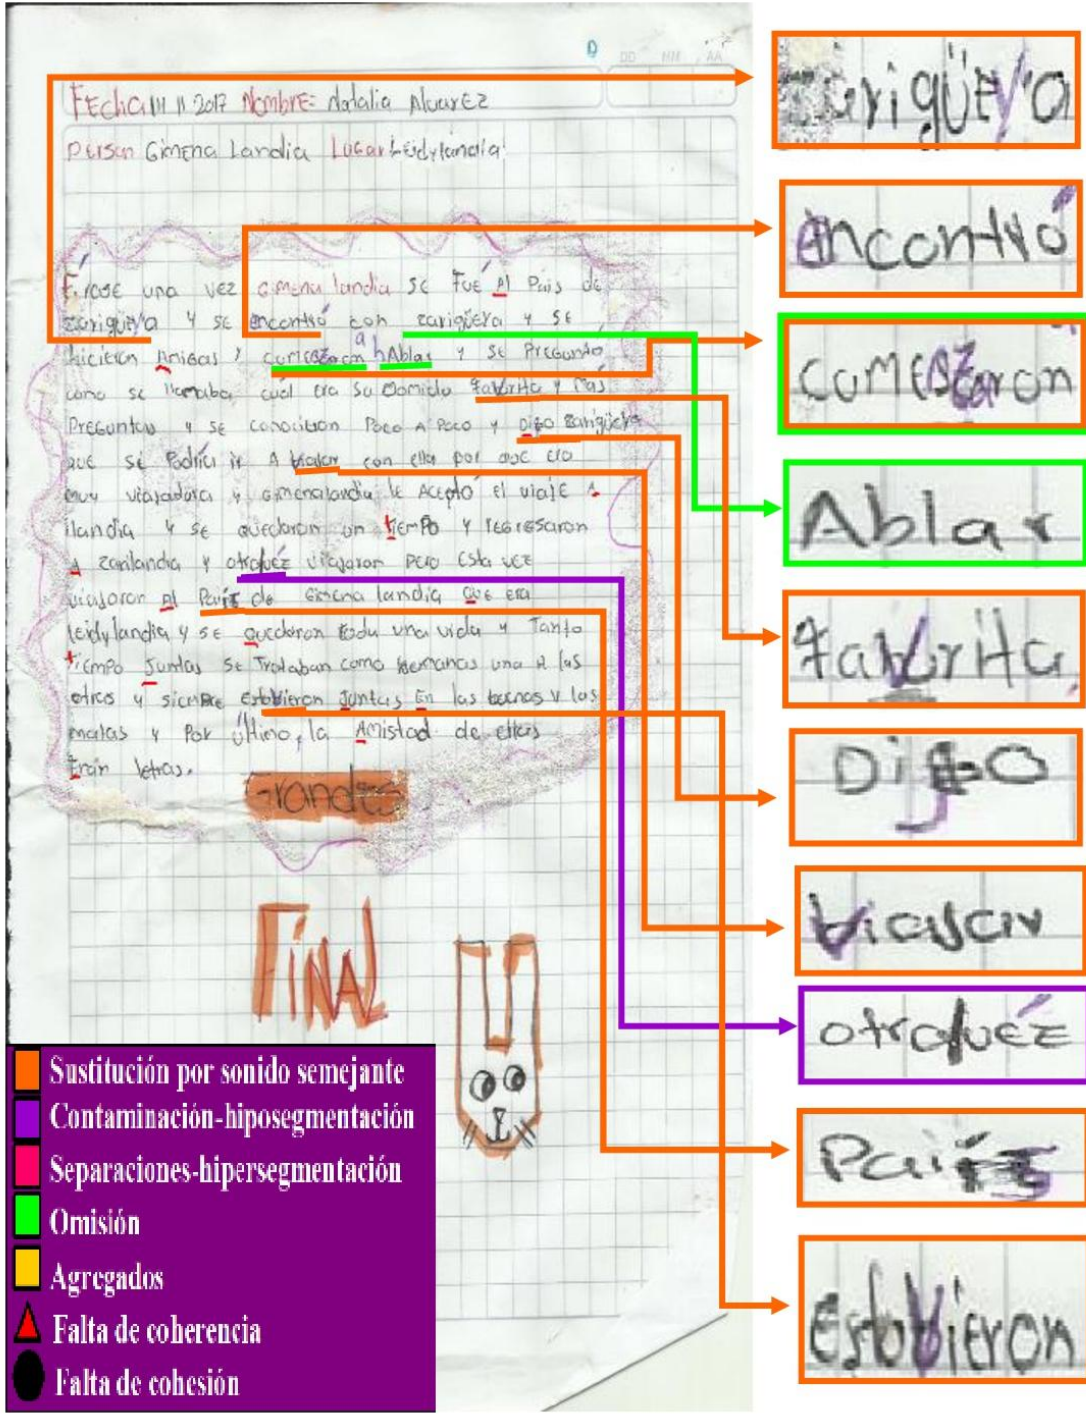 DD MM AA
Fecha 11 11 2017 Nombre: Natalia Alvarez
Person Gimena Landia Lugar Leidylandia
Érase una vez gimena landia se Fué Al Pais de
zarigüeya y se encontró con zarigüeya y se
hicieron Amigas y comenzaron a hAblar y se Pregunto
como se llamaba, cuál era su comida favorita y mas
Preguntas y se conocieron Poco A Poco y Dijo zarigüeya
que se Podria ir A viajar con ella por que era
muy viajadora y gimenalandia le Acepto el viaje A
ilandia y se quedaron un tiempo y regresaron
A zarilandia y otra véz viajaron pero Esta vez
viajaron Al País de Gimena landia que era
leidylandia y se quedaron toda una vida y Tanto
tiempo Juntas se Trataban como hermanas una A las
otras y siempre estovieron Juntas En las buenas y las
malas y Por Último, la Amistad de ellas
Eran letras.
Grandes
Final
zarigüeya
encontró
comenzaron
Ablar
favorita
Dijo
viajar
otra véz
País
estovieron
Sustitución por sonido semejante
Contaminación-hiposegmentación
Separaciones-hipersegmentación
Omisión
Agregados
Falta de coherencia
Falta de cohesión